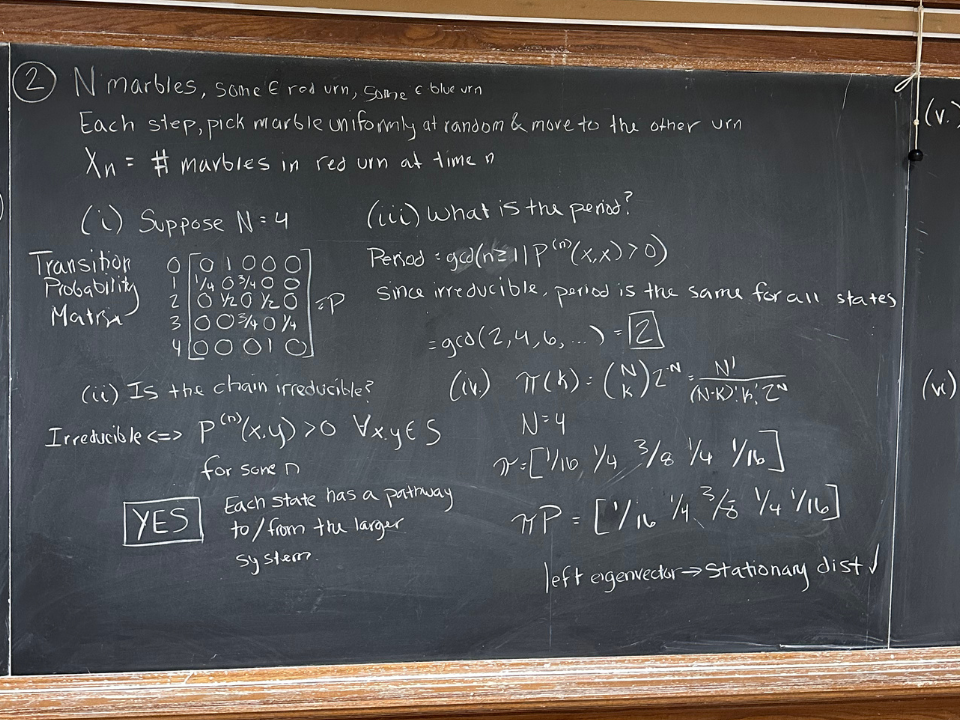 ② N marbles, some ∈ red urn, some ∈ blue urn
Each step, pick marble uniformly at random & move to the other urn
Xn = # marbles in red urn at time n
(i) Suppose N=4
Transition Probability Matrix
0 [0 1 0 0 0]
1 [1/4 0 3/4 0 0]
2 [0 1/2 0 1/2 0] = P
3 [0 0 3/4 0 1/4]
4 [0 0 0 1 0]
(ii) Is the chain irreducible?
Irreducible <=> P^(n)(x,y) > 0 ∀x,y ∈ S
for some n
YES
Each state has a pathway
to/from the larger
system.
(iii) What is the period?
Period = gcd(n≥1 | P^(n)(x,x) > 0)
since irreducible, period is the same for all states
= gcd(2,4,6,...) = 2
(iv.) π(k) = (N k) 2^-N = N! / (N-k)! k! 2^N
N=4
π = [1/16, 1/4 3/8 1/4 1/16]
πP = [1/16 1/4, 3/8 1/4 1/16]
left eigenvector → stationary dist ✓
(v.)
(vi)